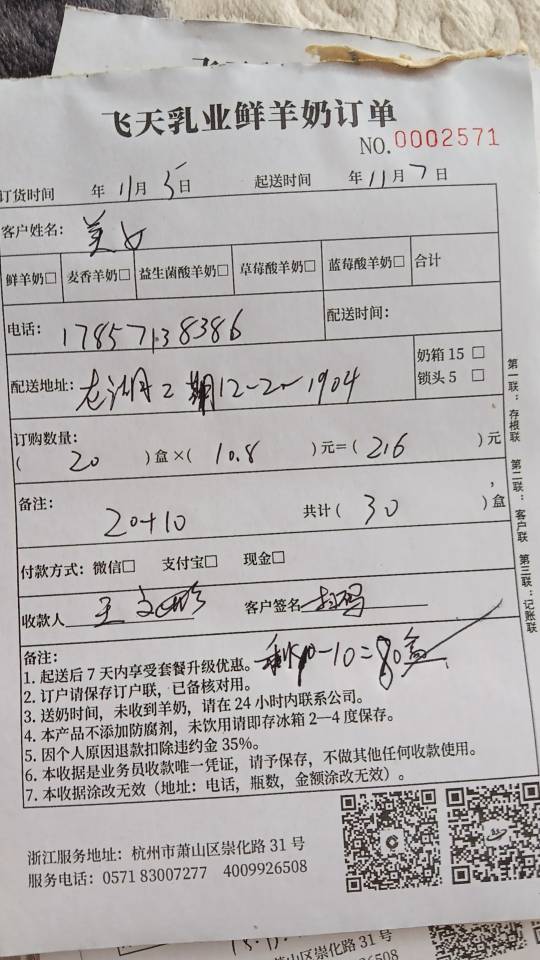 飞天乳业鲜羊奶订单
NO.0002571
订货时间 年11月5日 起送时间 年11月7日
客户姓名：美女
鲜羊奶□ 麦香羊奶□ 益生菌酸羊奶□ 草莓酸羊奶□ 蓝莓酸羊奶□ 合计
电话：17857138386 配送时间：
配送地址：龙湖2期12-2-1904 奶箱 15 □
锁头 5 □
订购数量：
（ 20 ）盒×（ 10.8 ）元=（ 216 ）元
备注：20+10 共计（ 30 ）盒
付款方式：微信□ 支付宝□ 现金□
收款人 王文 客户签名 扫码
剩90-10=80盒
备注：
1. 起送后 7 天内享受套餐升级优惠。
2. 订户请保存订户联，已备核对用。
3. 送奶时间，未收到羊奶，请在 24 小时内联系公司。
4. 本产品不添加防腐剂，未饮用请即存冰箱 2—4 度保存。
5. 因个人原因退款扣除违约金 35%。
6. 本收据是业务员收款唯一凭证，请予保存，不做其他任何收款使用。
7. 本收据涂改无效（地址：电话，瓶数，金额涂改无效）。
浙江服务地址：杭州市萧山区崇化路 31 号
服务电话：0571 83007277 4009926508
第一联：存根联 第二联：客户联 第三联：记账联
萧山区崇化路 31 号
926508